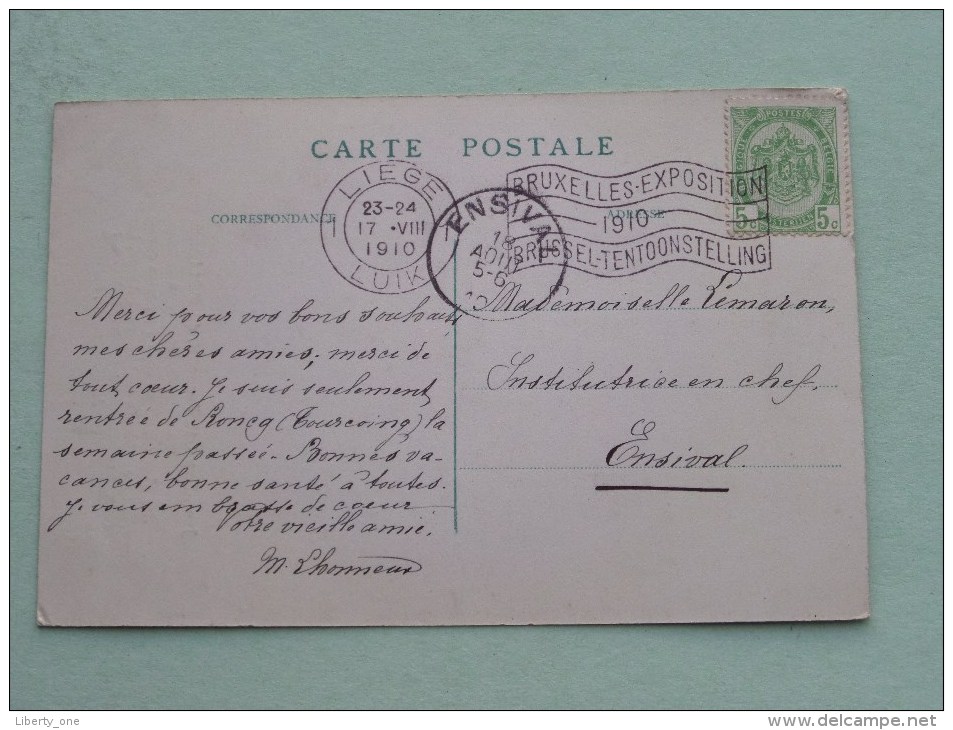 CARTE POSTALE
CORRESPONDANCE
ADRESSE
LIEGE
23-24
17 ·VIII
1910
LUIK
ENSIVAL
18
AOUT
5-6
10
BRUXELLES-EXPOSITION
1910
BRUSSEL-TENTOONSTELLING
POSTES
5c 5c
Merci pour vos bons souhaits,
mes chères amies; merci de
tout cœur. Je suis seulement
rentrée de Roncq (Tourcoing) la
semaine passée. Bonnes va-
cances, bonne santé à toutes.
Je vous embrasse de cœur
Votre vieille amie.
M. Lhonneux
Mademoiselle Lemaron,
Institutrice en chef,
Ensival.
Liberty_one
www.delcampe.net